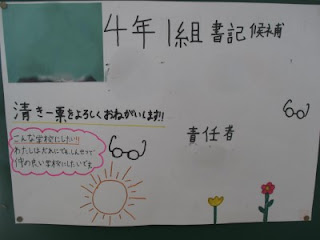 4年1組 書記候補
清き一票をよろしくおねがいします!!
責任者
こんな学校にしたい!!
わたしはだれにでもしんせつで
仲の良い学校にしたいです